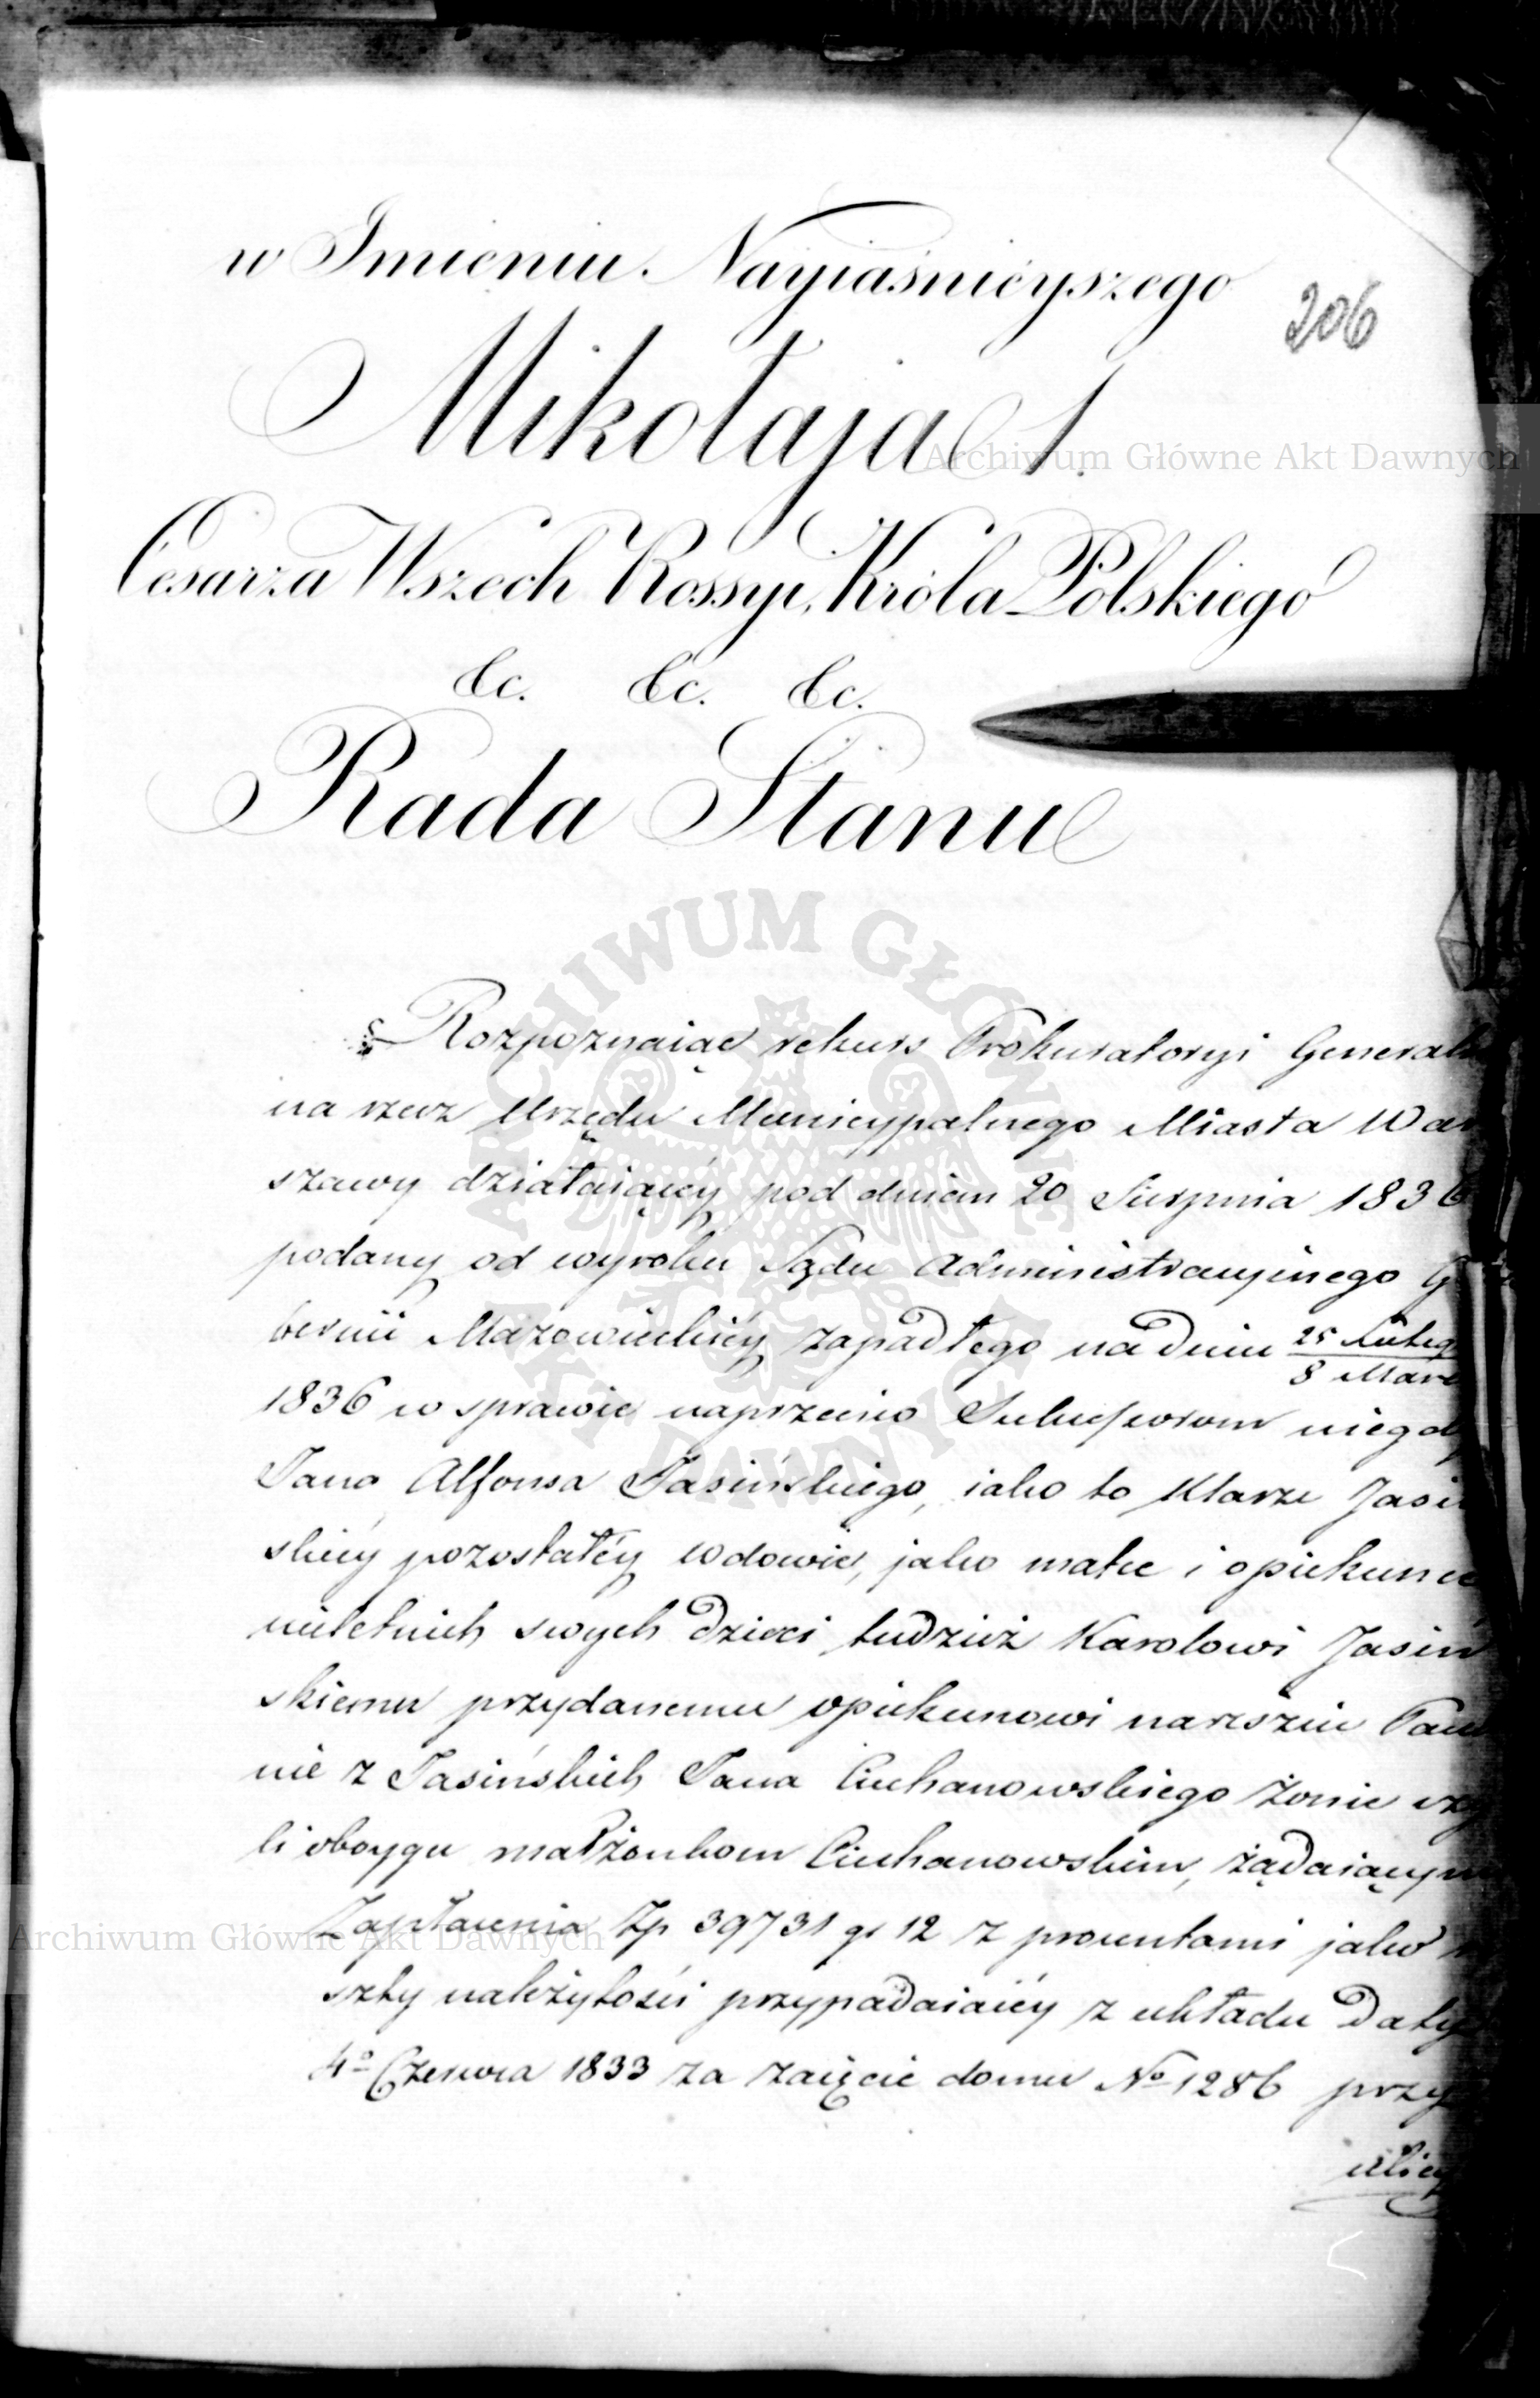 w Imieniu Nayiaśnieyszego
206
Mikołaja I.
Cesarza Wszech Rossyi, Króla Polskiego
&c. &c. &c.
Rada Stanu
Rozpoznaiąc rekurs Prokuratoryi Generaln
na rzecz Urzędu Municypalnego Miasta War
szawy działaiącéy pod dniem 20 Sierpnia 1836
podany od wyroku Sądu Administracyinego G
bernii Mazowieckiéy zapadłego na dniu 25 Luteg
8 Marc
1836 w sprawie naprzeciwo Sukcessorom niegdy
Jana Alfonsa Jasińskiego, iako to Klarze Jasiń
skiéy pozostałéy wdowie, jako matce i opiekunce
nieletnich swych dzieci tudzież Karolowi Jasiń
skiemu przydanemu opiekunowi nareszcie Pau
nie z Jasińskich Jana Ciechanowskiego żonie czy
li oboygu małżonkom Ciechanowskim, żądaiącym
Zapłacenia Zp 39731 gr 12 z procentami jako
szty należytości przypadaiącéy z układu Daty
4º Czerwca 1833 za zaięcie domu Nº 1286 przy
ulicy
Archiwum Główne Akt Dawnych
ARCHIWUM GŁÓWNE
AKT DAWNYCH
Archiwum Główne Akt Dawnych